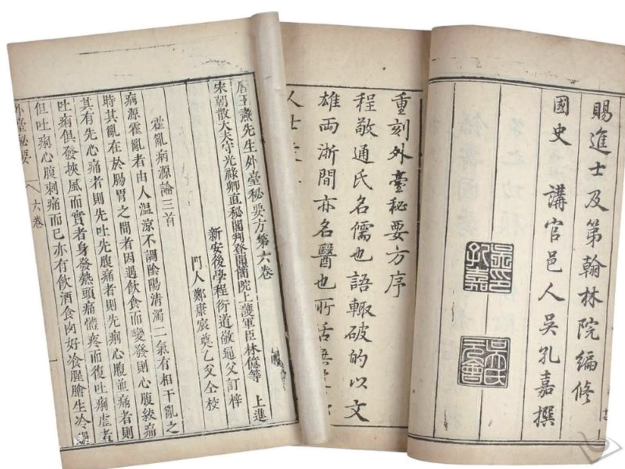 賜進士及第翰林院編修
國史 講官邑人吳孔嘉撰
重刻外臺秘要方序
程敬通氏名儒也語輒破的以文
雄兩浙間亦名醫也所活無
人士
唐王燾先生外臺秘要方第六卷
宋朝散大夫守光祿卿直秘閣判登聞檢院上護軍臣林億等 上進
新安後學程衍道敬通父訂梓
門人鄭康宸 父仝校
霍亂病源論三首
病源霍亂者由人溫涼不調陰陽清濁二氣有相干亂之
時其亂在於腸胃之間者因遇飲食而變發則心腹絞痛
其有先心痛者則先吐先腹痛者則先痢心腹並痛者則
吐痢俱發挾風而實者身發熱頭痛體疼而復吐痢虛
但吐痢心腹刺痛而已亦有飲酒食肉好飡腥膾生冷過
外臺秘要 六卷